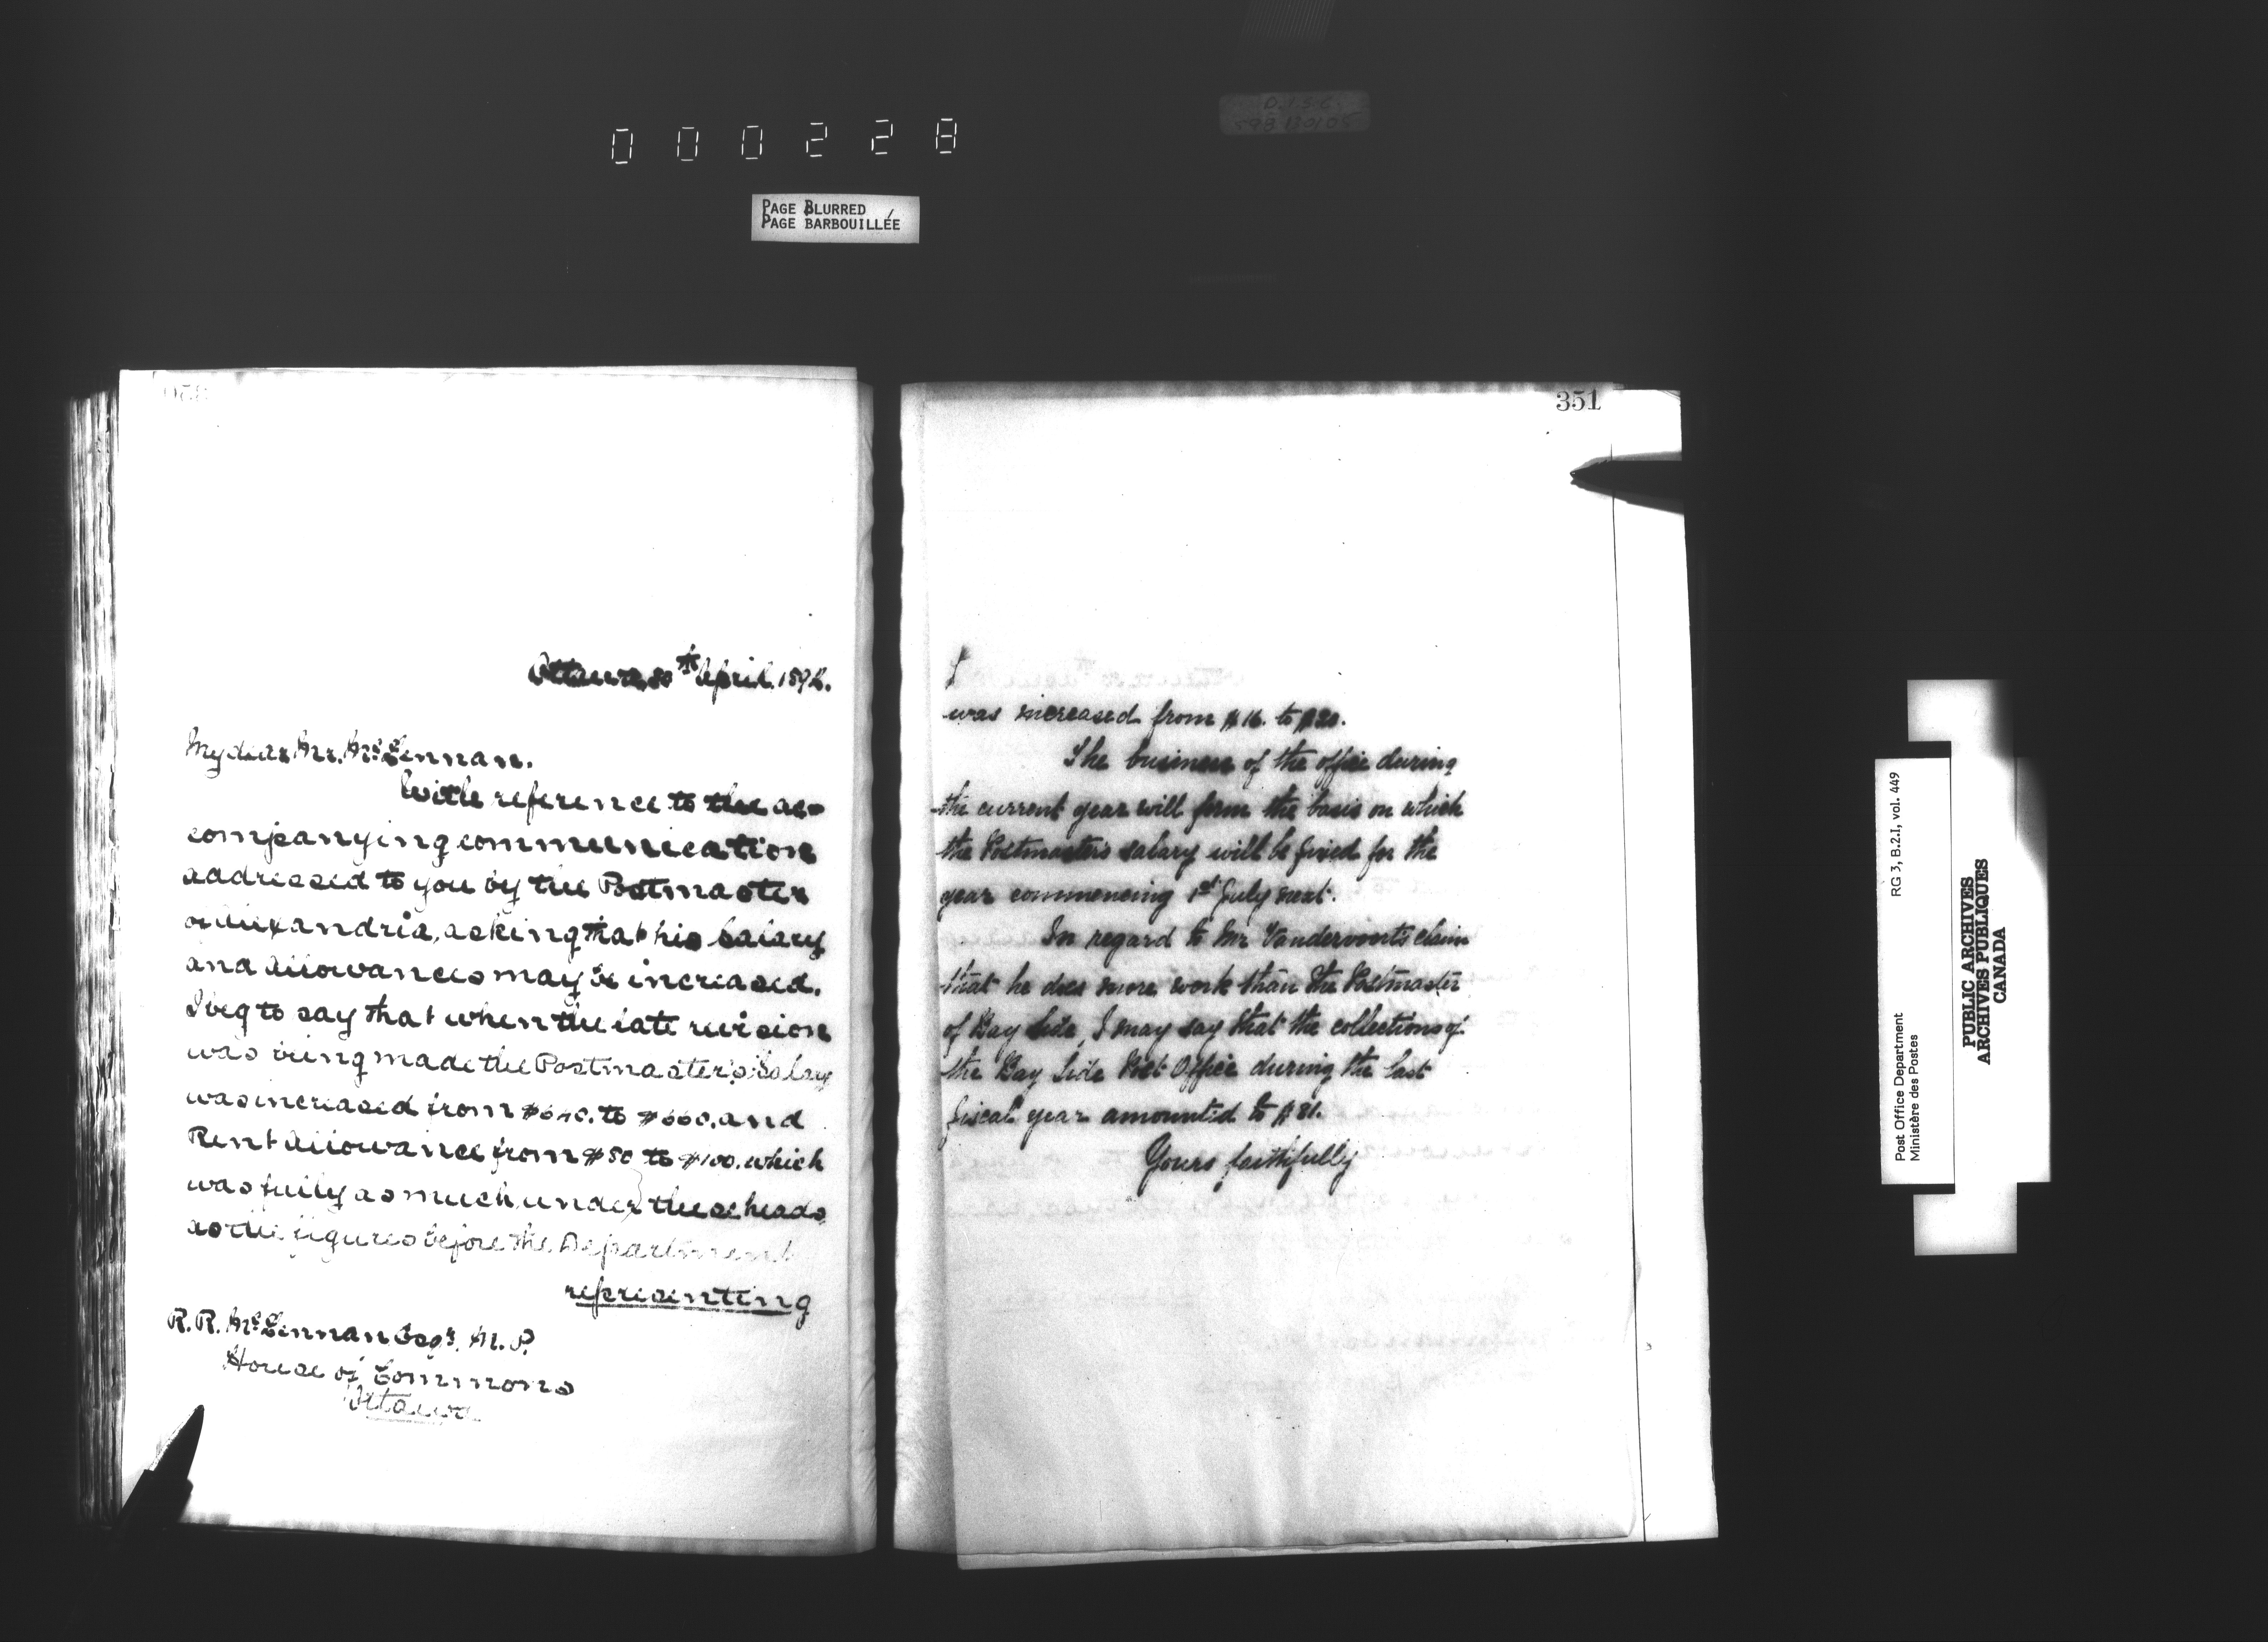 000228
PAGE BLURRED
PAGE BARBOUILLÉE
Ottawa, 30th April, 1892.
My dear Mr. McLennan.
With reference to the ac-
companying communication
addressed to you by the Postmaster
of Alexandria, asking that his salary
and allowances may be increased.
I beg to say that when the late revision
was being made the Postmaster's Salary
was increased from $640. to $660. and
Rent allowance from $50 to $100. which
was fully as much under these heads
as the figures before the Department
representing
R. R. McLennan Esqr. M. P.
House of Commons
Ottawa
351
was increased from $16. to $20.
The business of the office during
the current year will form the basis on which
the Postmaster's salary will be fixed for the
year commencing 1st July next.
In regard to Mr Vandervoort's claim
that he does more work than the Postmaster
of Bay Side, I may say that the collections of
the Bay Side Post Office during the last
fiscal year amounted to $81.
Yours faithfully
Post Office Department
Ministère des Postes
RG 3, B.2.I, vol. 449
PUBLIC ARCHIVES
ARCHIVES PUBLIQUES
CANADA